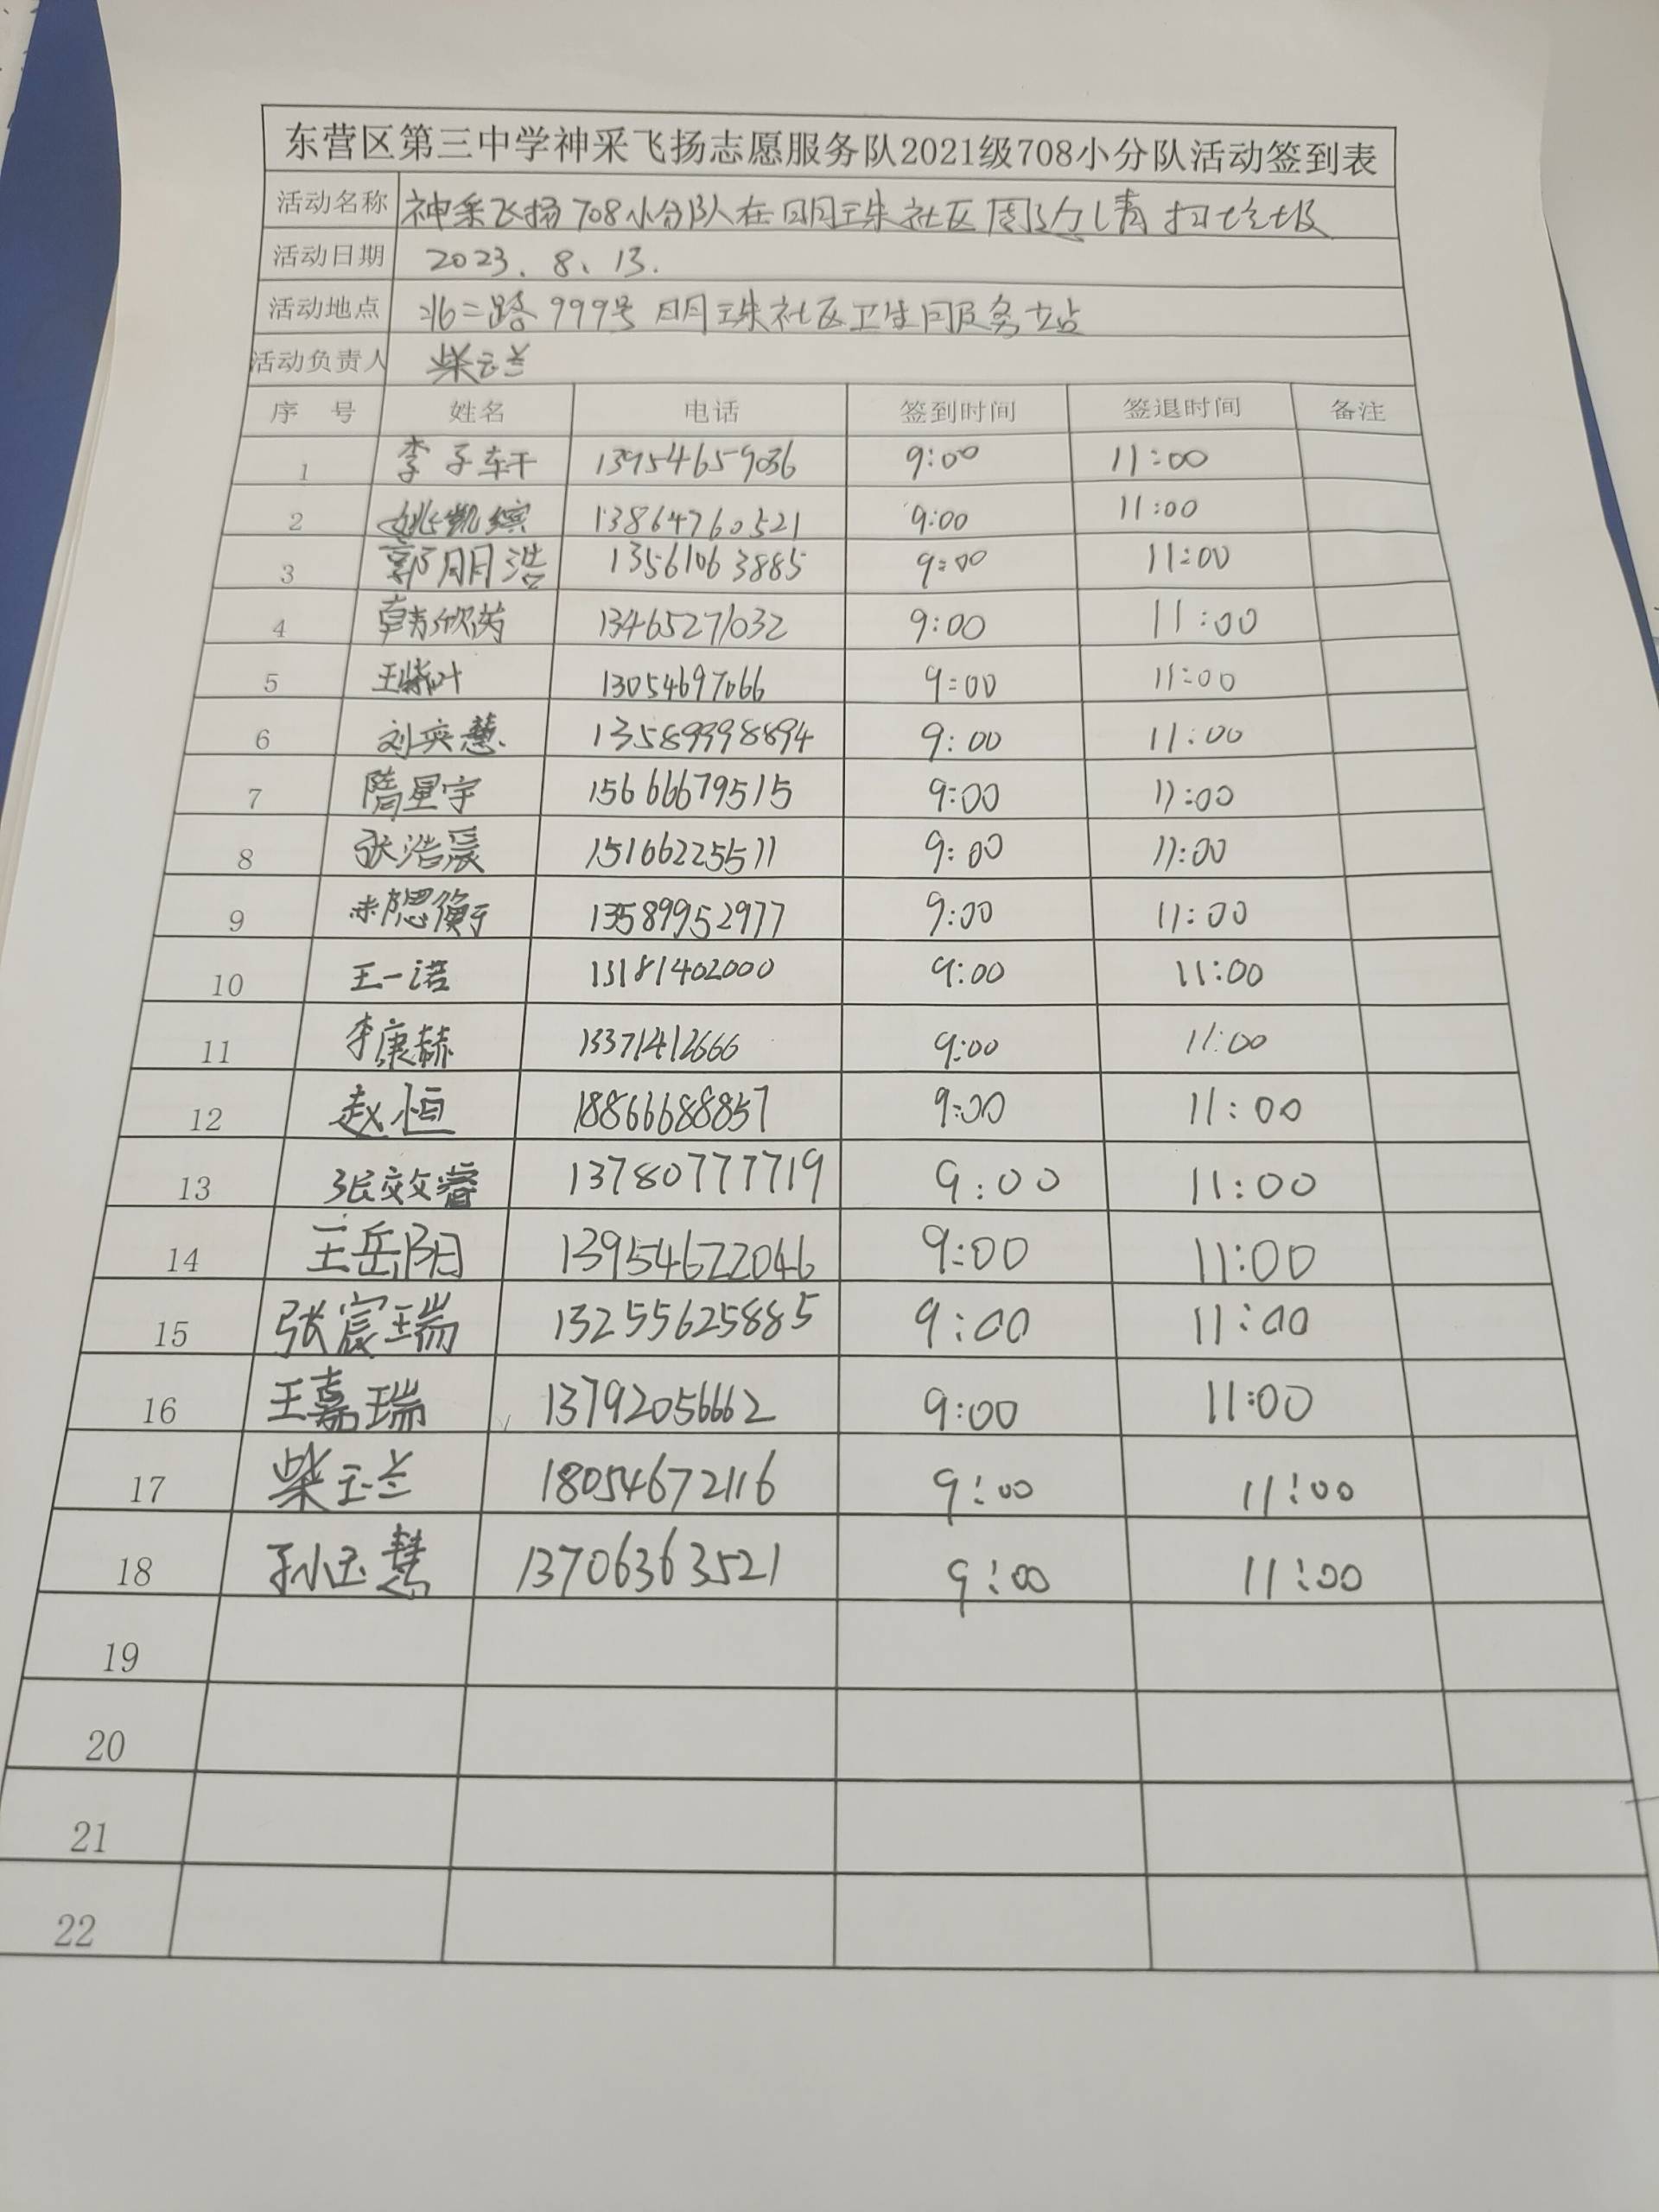 东营区第三中学神采飞扬志愿服务队2021级708小分队活动签到表
活动名称 神采飞扬708小分队在明珠社区周边清扫垃圾
活动日期 2023.8.13.
活动地点 北二路999号明珠社区卫生服务站
活动负责人 柴玉兰
序号 姓名 电话 签到时间 签退时间 备注
1 李子轩 13954659036 9:00 11:00
2 姚凯缤 13864760521 9:00 11:00
3 郭明浩 13561063885 9:00 11:00
4 韩欣芮 13465271032 9:00 11:00
5 王紫叶 13054697066 9:00 11:00
6 刘奕慧 13589998894 9:00 11:00
7 隋星宇 15666679515 9:00 11:00
8 张浩宸 15166225511 9:00 11:00
9 13589952977 9:00 11:00
10 王一诺 13181402000 9:00 11:00
11 李康赫 13371412666 9:00 11:00
12 赵恒 18866688857 9:00 11:00
13 张效睿 13780777719 9:00 11:00
14 王岳阳 13954622046 9:00 11:00
15 张宸瑞 13255625885 9:00 11:00
16 王嘉瑞 13792056662 9:00 11:00
17 柴玉兰 18054672116 9:00 11:00
18 孙玉慧 13706363521 9:00 11:00
19
20
21
22